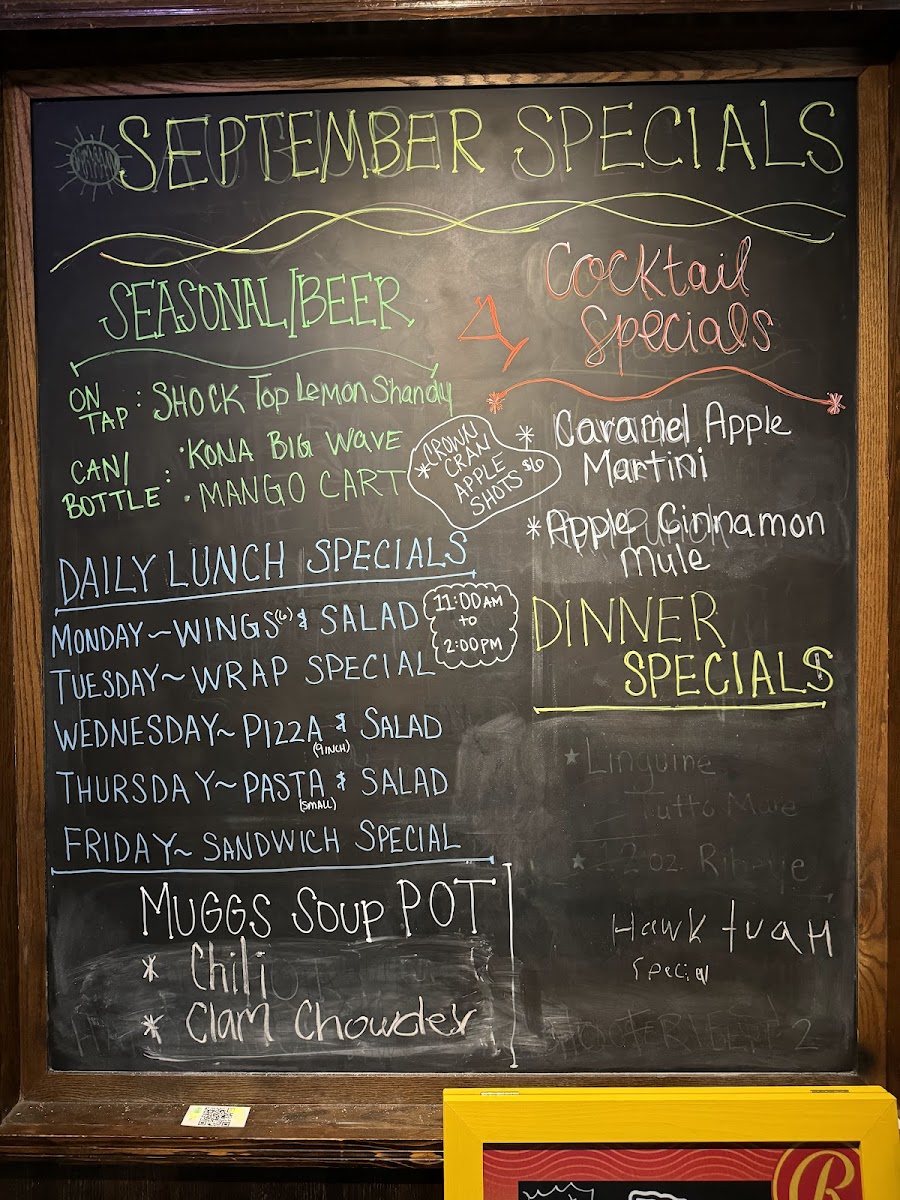 SEPTEMBER SPECIALS
SEASONAL/BEER
ON TAP: SHOCK Top Lemon Shandy
CAN/
BOTTLE: • KONA BIG WAVE
• MANGO CART
* CROWN
CRAN
APPLE
SHOTS $6
Cocktail
Specials
* Caramel Apple
Martini
* Apple Cinnamon
Mule
DAILY LUNCH SPECIALS
11:00 AM
to
2:00 PM
MONDAY ~ WINGS (6) & SALAD
TUESDAY ~ WRAP SPECIAL
WEDNESDAY ~ PIZZA & SALAD
(9 INCH)
THURSDAY ~ PASTA & SALAD
(SMALL)
FRIDAY ~ SANDWICH SPECIAL
MUGGS Soup POT
* Chili
* Clam Chowder
DINNER
SPECIALS
* Linguine
Tutto Mare
* 12 oz. Ribeye
Hawk tuaH
Special
R